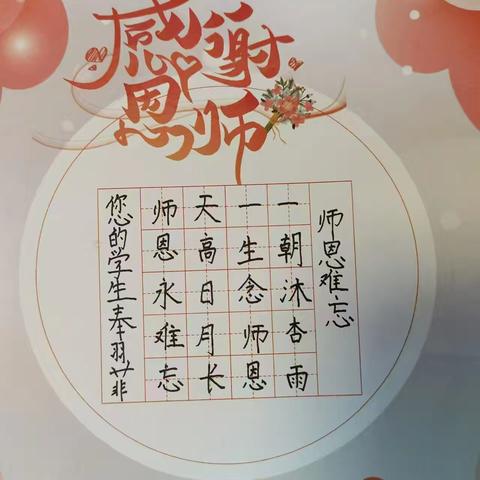 感谢恩师
师恩难忘
一朝沐杏雨
一生念师恩
天高日月长
师恩永难忘
您的学生奉羽菲